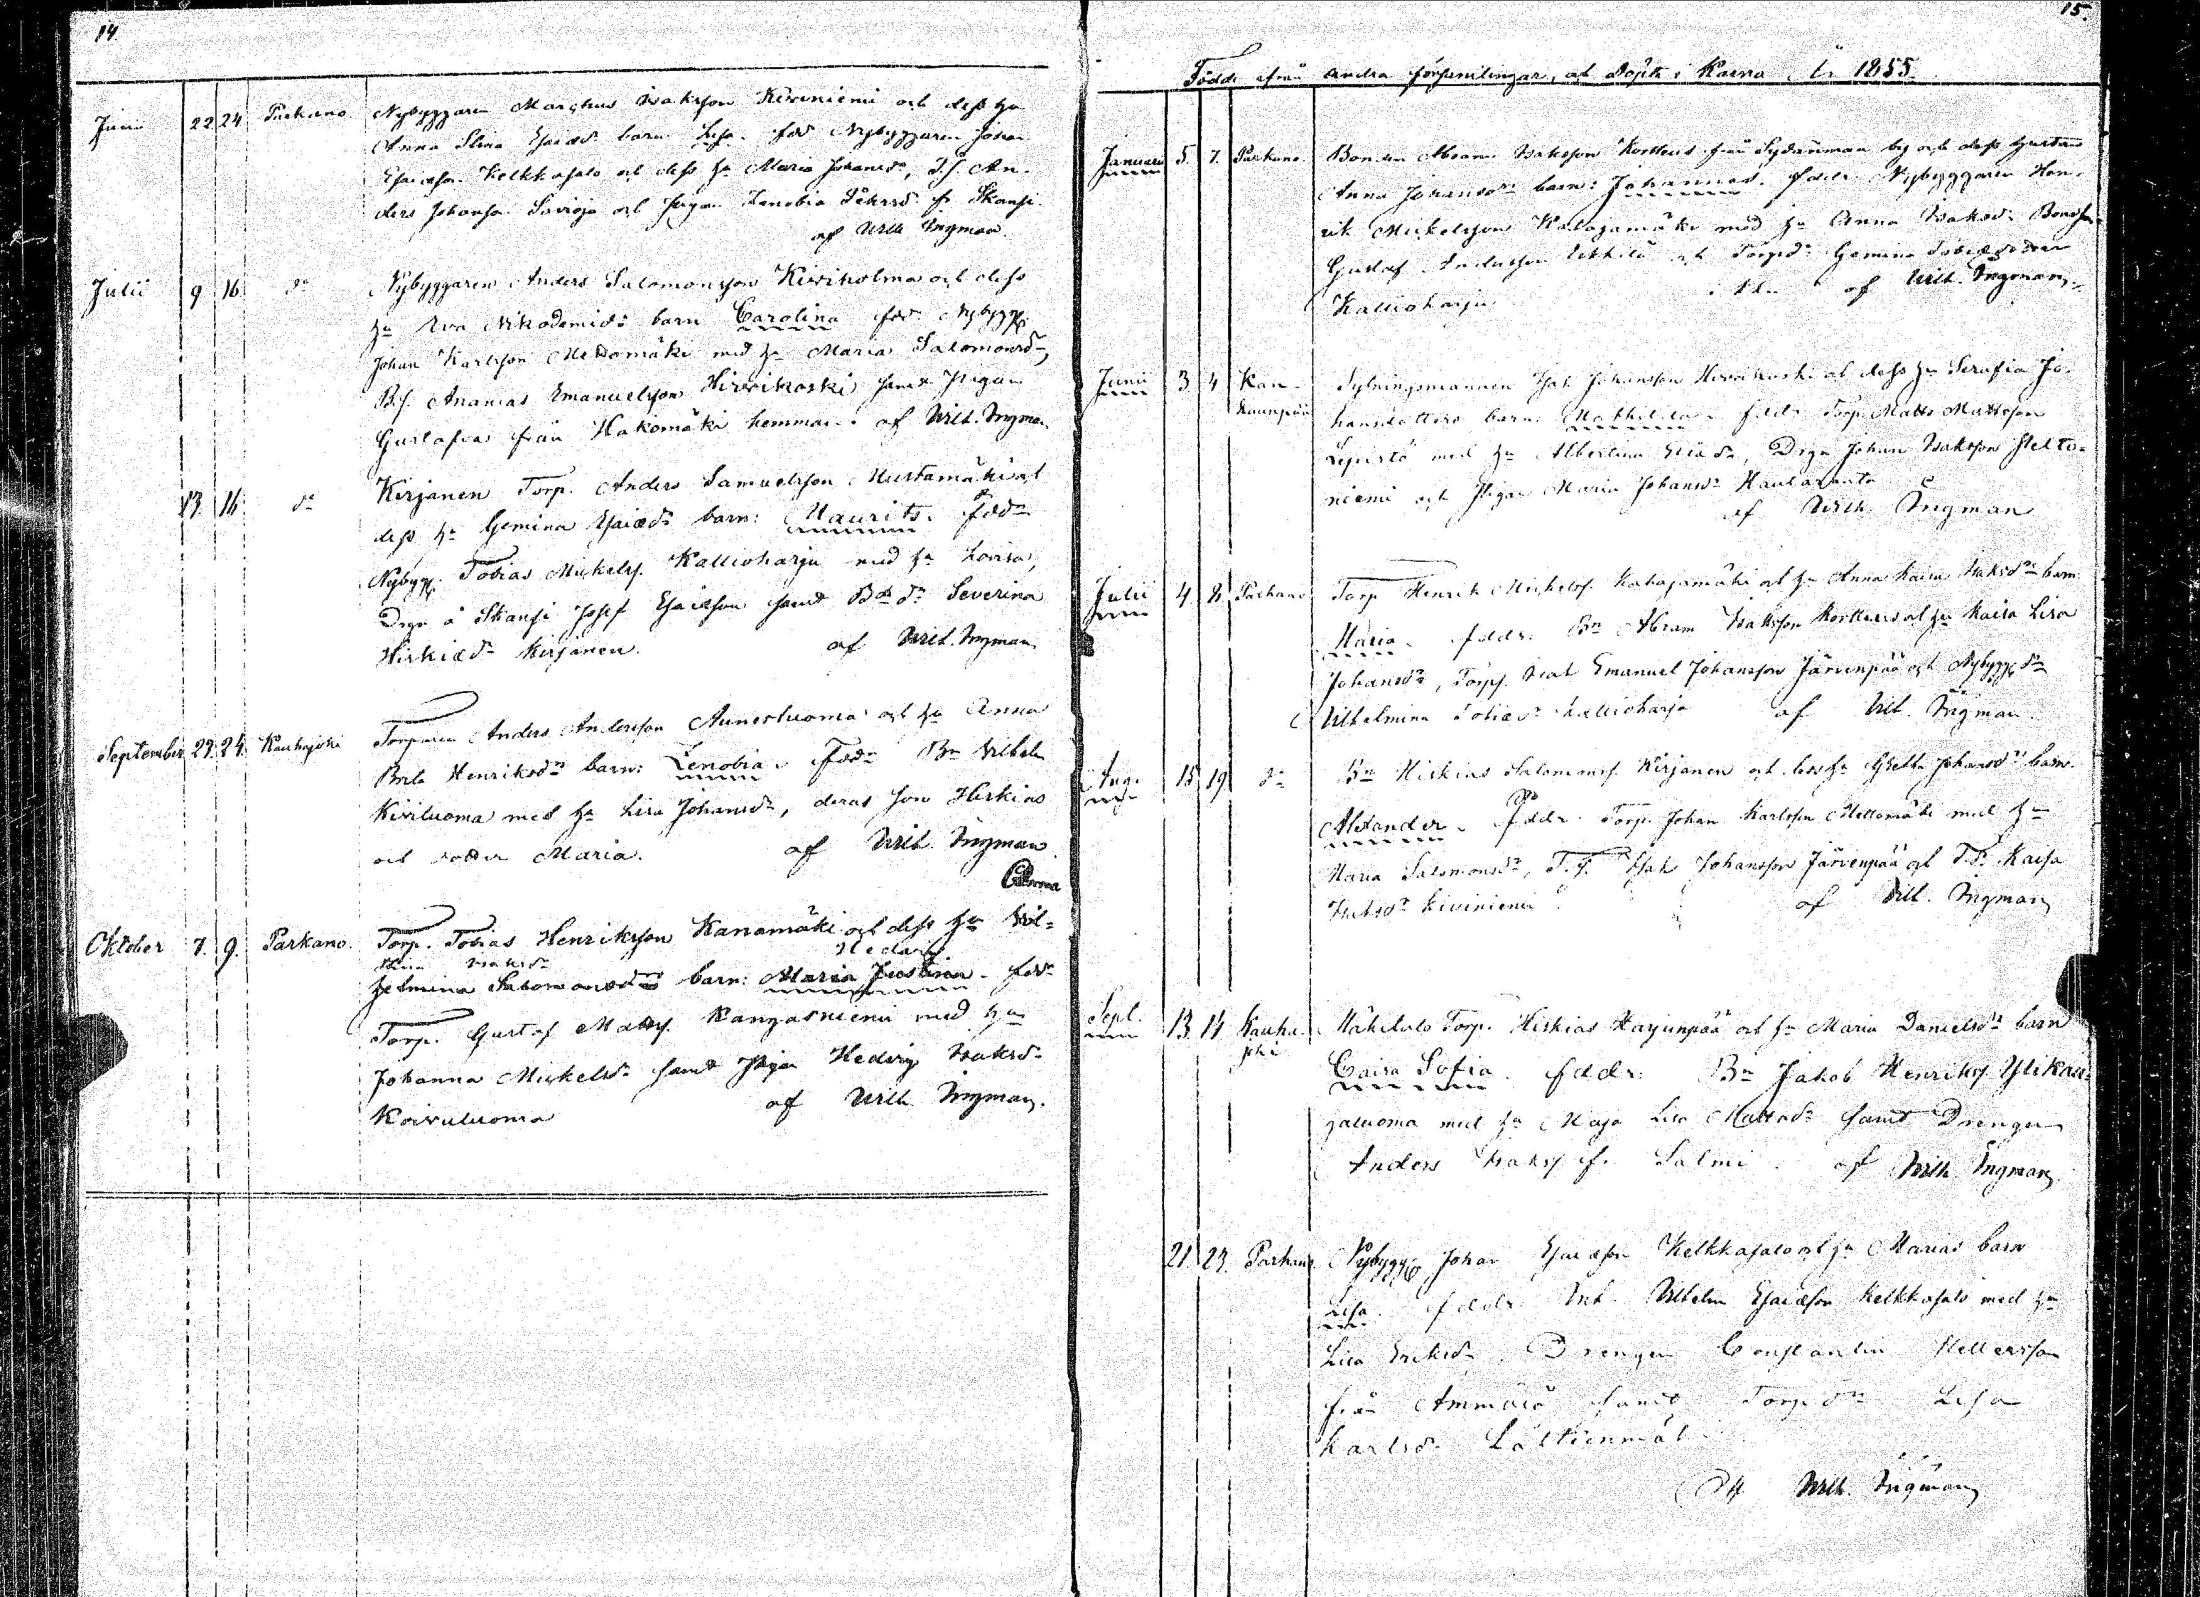 14.
Junii 22 24 Parkano Nybyggaren Marghus Isaksson Kiviniemi och dess hu
Anna Stina Esaiæd. barn Lisa. fdd Nybyggaren Johan
Esaiæson Kelkkasalo och dess hu Maria Johansdr, T.S. An-
ders Johansson Savioja och pigan Zenobia fr Skansi.
af Wilh Ingman.
Julii 9 16 do Nybyggaren Anders Salomonsson Kiviholma och dess
hu Eva Nikodemidr barn Carolina fdd Nybygg.
Johan Karlsson Mettomäki med hu Maria Salomonsdr,
B.S. Ananias Emanuelsson Hirvikoski samt Pigan
Gustafva från Hakomäki hemman. af Wilh. Ingman
13. 16. do Kirjanen Torp. Anders Samuelsson Mustamäki och
dess hu Gemina Esaiædr barn: Maurits. fddr
Nybygg. Tobias Mickelss. Kallioharju med hu Lovisa,
Drgn å Skansi Josef Esaiæson samt Bdr Severina
Hiskiædr Kirjanen. af Wilh. Ingman
September 22. 24. Kauhajoki Torparen Anders Andersson Aunesluoma och hu Anna
Brita Henriksdrs barn: Zenobia. Fddr Bn Wilhelm
Kiviluoma med hu Lisa Johansdr, deras son Hiskias
och dotter Maria. af Wilh. Ingman
Oktober 7. 9. Parkano. Torp. Tobias Henriksson Kanamäki och dess hu Wil-
Hedvig
helmina barn: Maria Justina. fddr
Torp. Gustaf Mattss. Kangasniemi med hu
Johanna Mickelsdr samt Pigan Hedvig Isaksdr
Koivuluoma af Wilh Ingman.
15.
Födde ifrån andra församlingar, och döpte i Karvia År 1855.
Januarii 5. 7. Parkano. Bonden Abram Isaksson Korttus från Sydänmaa by och dess hustru
Anna Johansdrs barn: Johannes. fddr. Nybyggaren Hen-
rik Mickelsson Katajamäki med hu Anna Isaksdr. Bondson
Gustaf Andersson och Torpdr Gemina Tobiædotter
Kallioharju af Wilh. Ingman.
Junii 3 4 Kan-
kaanpää Sytningsmannen Isak Johansson Hirvikoski och dess hu Serafia Jo-
hansdotters barn: Mathilda. fddr Torp. Matts Mattsson
Lepistö med hu Albertina Eliædr, Drgn Johan Isaksson Pelto-
niemi och Pigan Maria Johansdr Hautaranta
af Wilh Ingman
Julii 4 8 Parkano Torp Henrik Mickelss. Katajamäki och hu Anna Kaisa Isaksdrs barn
Maria. fddr. Bn Abram Isaksson Korttus och hu Kaisa Lisa
Johansdr, Torps. Emanuel Johansson Järvenpää och Nybyggdr
Wilhelmina Tobiædr Kallioharju af Wilh. Ingman.
Aug. 15 19 do Bn Hiskias Salomonss. Kirjanen och dess hu Greta Johansdrs barn.
Alexander. fddr. Torp. Johan Karlsson Mettomäki med hu
Maria Salomonsdr, T.S. Isak Johansson Järvenpää och T.D. Kaisa
Isaksdr Kiviniemi af Wilh. Ingman
Sept. 13 14 Kauha-
joki Mäkitalo Torp. Hiskias Harjunpää och hu Maria Danielsdrs barn
Caisa Sofia. fddr: Bn Jakob Henrikss Ylikau-
galuoma med hu Maja Lisa Mattsdr samt Drengen
Anders Isakss fr. Salmi. af Wilh Ingman.
21. 23. Parkano Nybygg Johan Esaiæson Kelkkasalo och hu Marias barn
Lisa. fddr Inh. Wilhelm Esaiæson Kelkkasalo med hu
Lisa Eriksdr Drengen Constantin
från Ämmälä samt Torpdr Lisa
Karlsdr Lättienmäk
af Wilh. Ingman